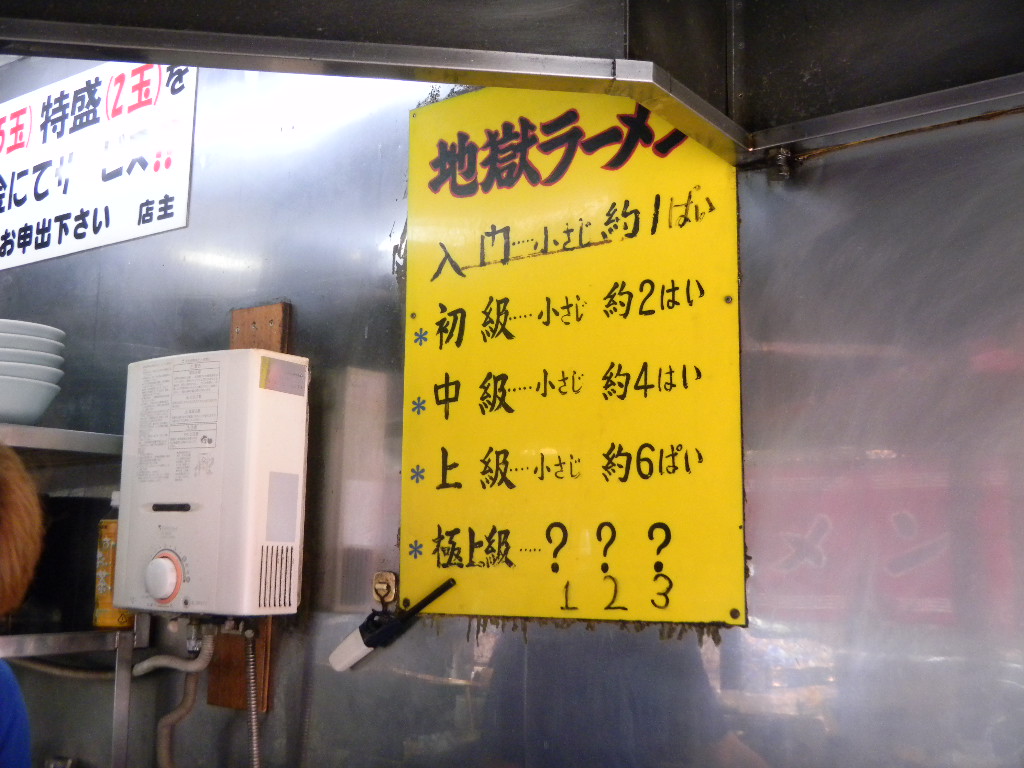 玉) 特盛(2玉)を
金にて
お申出下さい 店主
地獄ラーメン
入門……小さじ 約1ぱい
*初級……小さじ 約2はい
*中級……小さじ 約4はい
*上級……小さじ 約6ぱい
*極上級……? ? ?
1 2 3